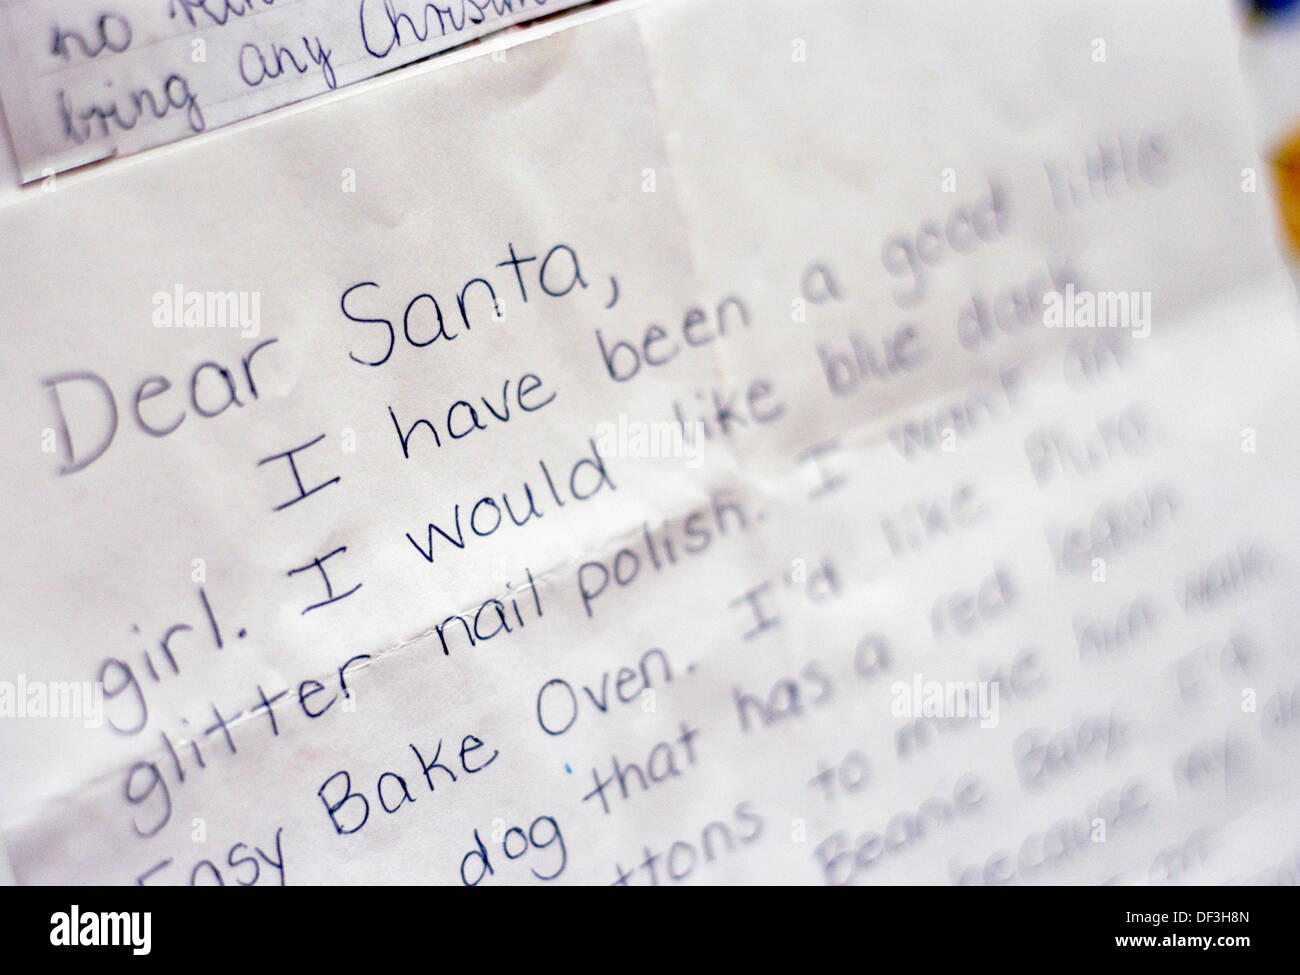 no
bring any Christm
Dear Santa,
I have been a good little
girl. I would like blue dark
glitter nail polish. I want an
Easy Bake Oven. I'd like Pluto
dog that has a red leash
ttons to make him walk.
Beanie Baby. I'd
because my
an
alamy
Image ID: DF3H8N
www.alamy.com